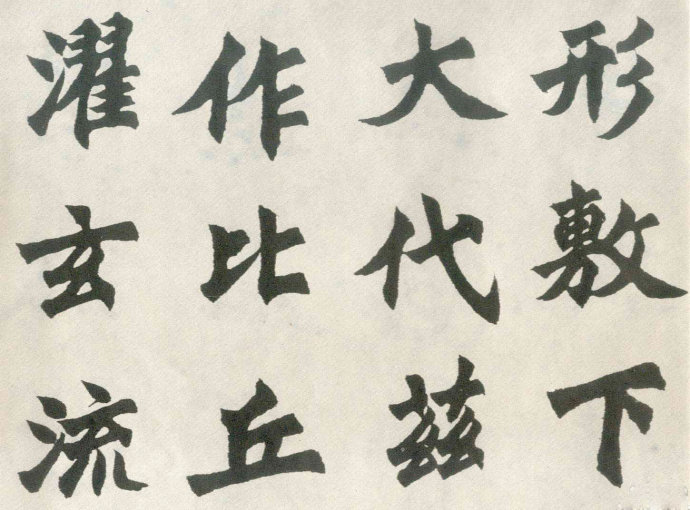 形敷下
大代茲
作比丘
濯玄流